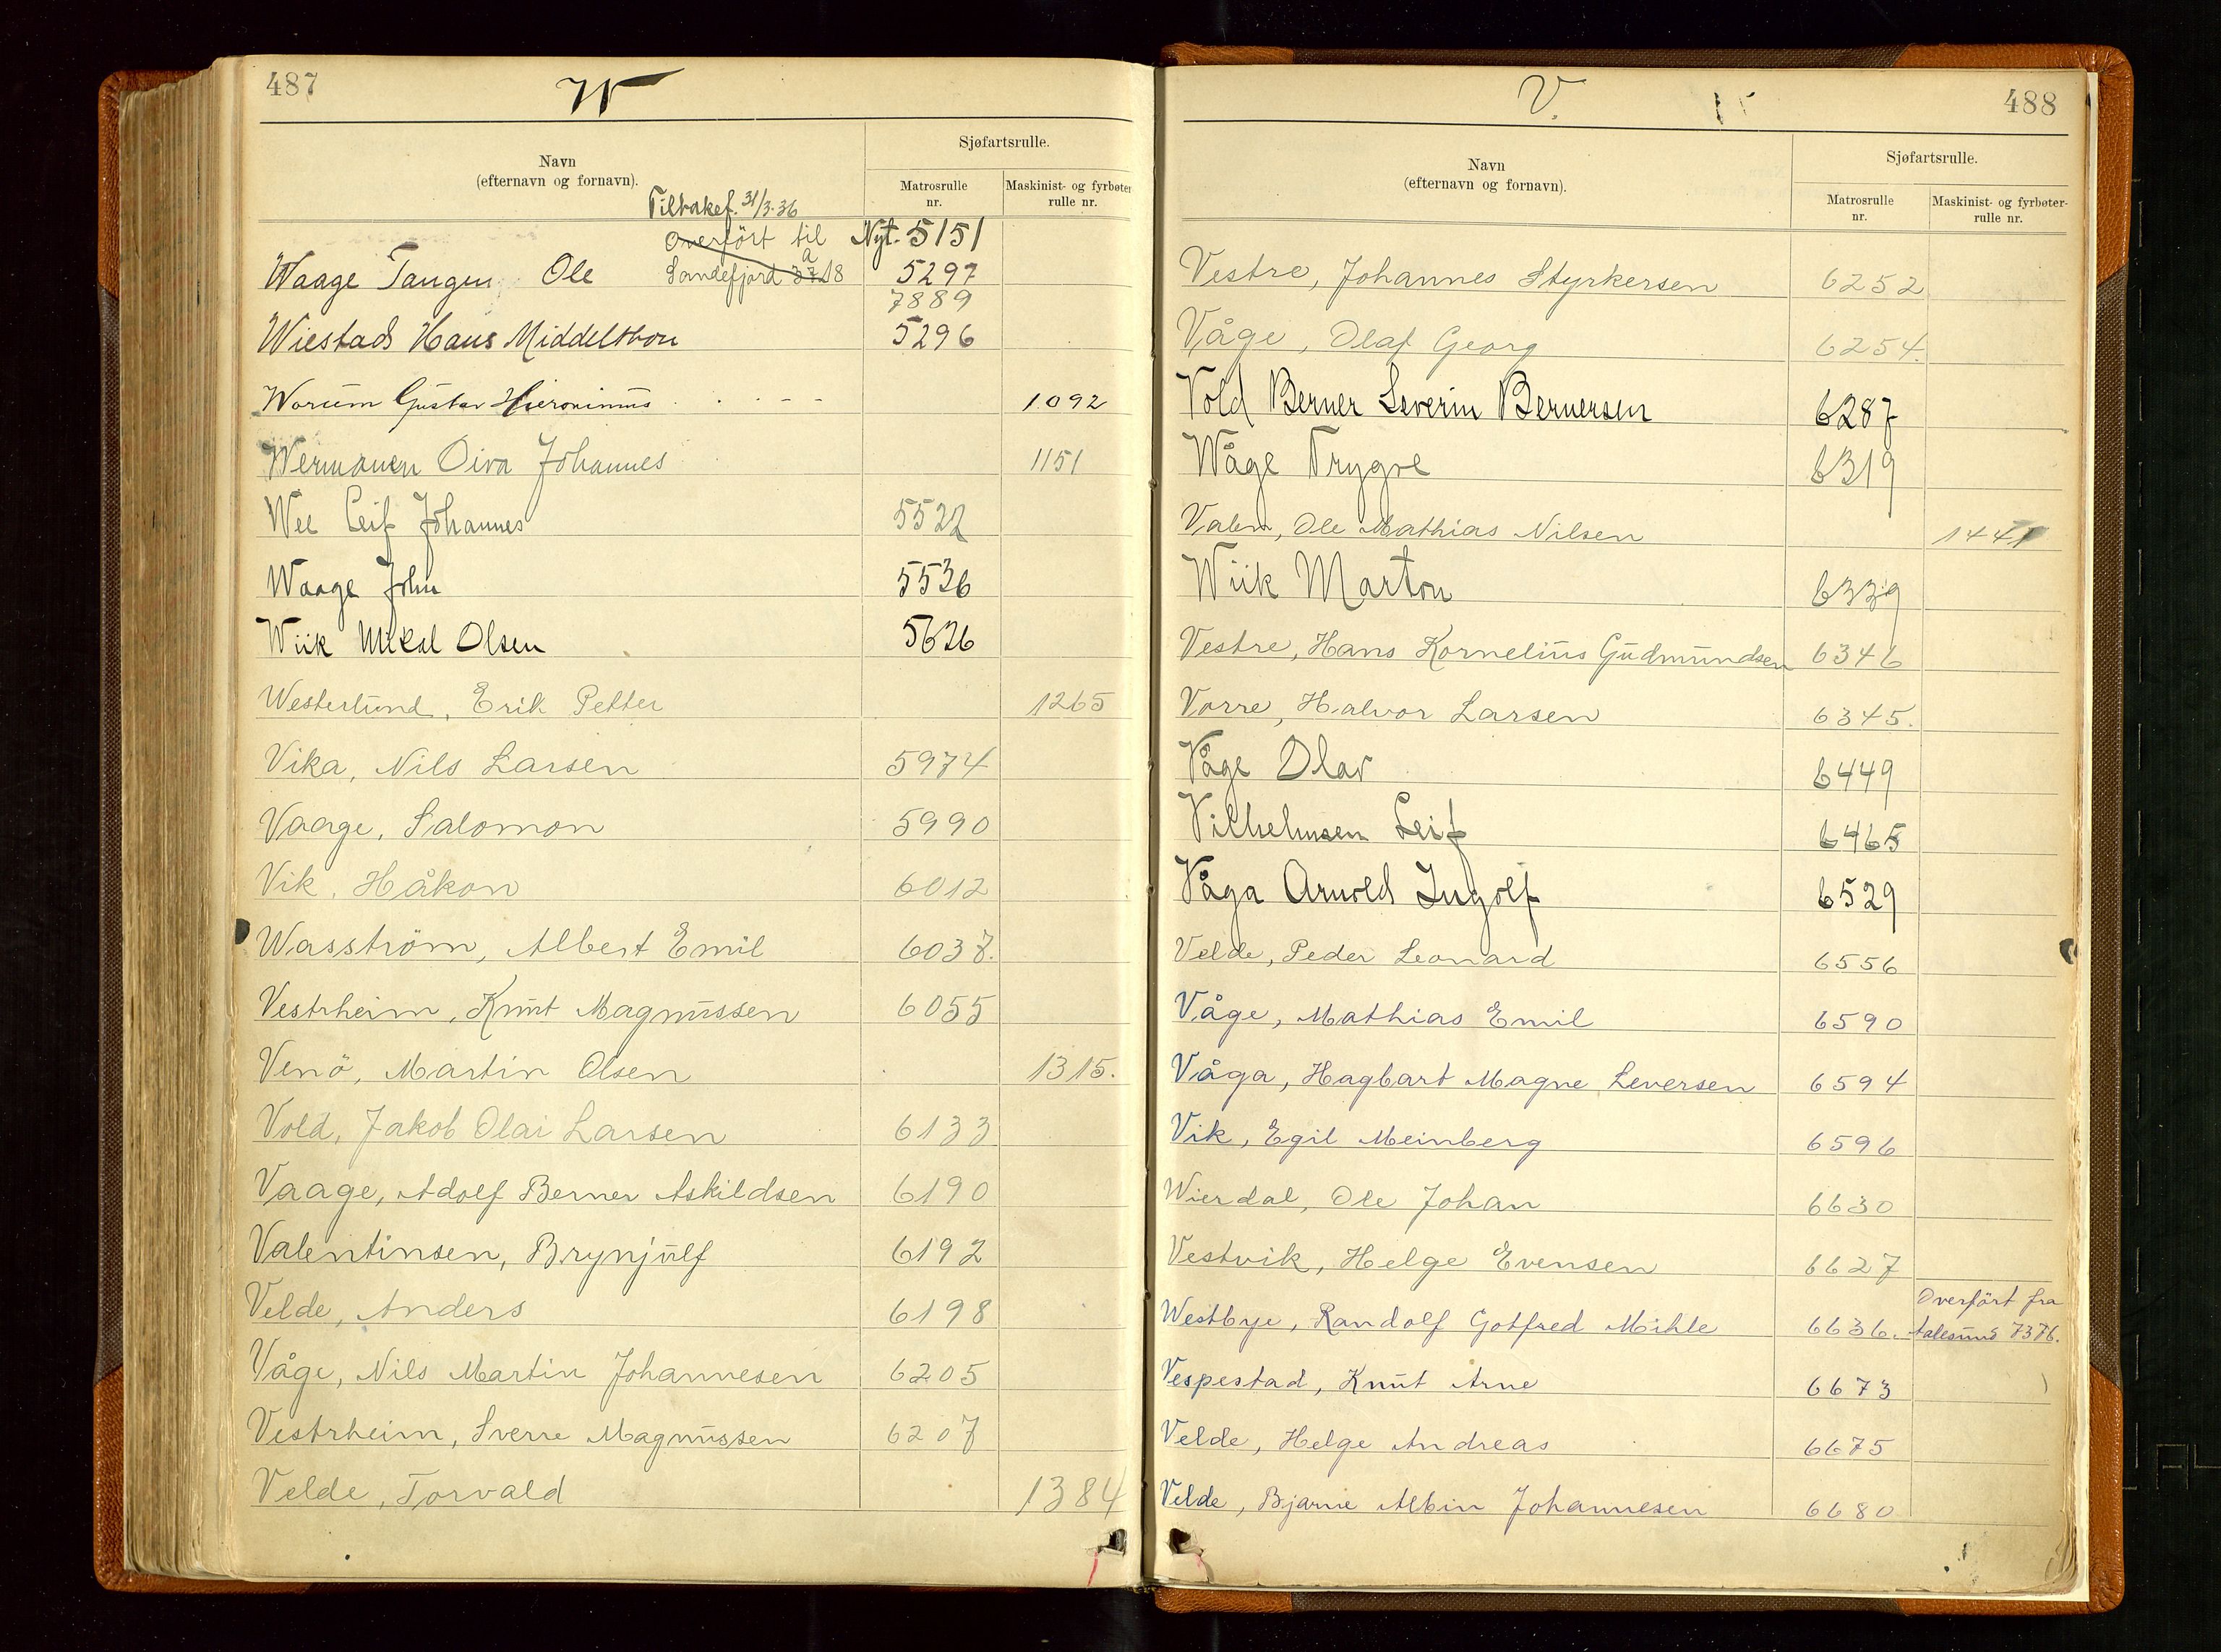 487
W
Navn
(efternavn og fornavn).
Sjøfartsrulle.
Matrosrulle
nr.
Maskinist- og fyrbøter
rulle nr.
Tilbakef. 31/3-36
Overfört til Nyt. 5151
Waage Tangen, Ole Sandefjord 5297
7889
Wiestad Hans Middelthon 5296
Worum Gustav Hieronimus 1092
Wermanen Oiva Johannes 1151
Wee Leif Johannes 5522
Waage John 5536
Wiik Mikal Olsen 5626
Westerlund, Erik Petter 1265
Vika, Nils Larsen 5974
Vaage, Salomon 5990
Vik, Håkon 6012
Wasström, Albert Emil 6037.
Vestrheim, Knut Magnussen 6055
Venö, Martin Olsen 1315.
Vold, Jakob Olai Larsen 6133
Vaage, Adolf Berner Askildsen 6190
Valentinsen, Brynjulf 6192
Velde, Anders 6198
Våge, Nils Martin Johannesen 6205
Vestrheim, Sverre Magnussen 6207
Velde, Torvald 1384
V.
488
Navn
(efternavn og fornavn).
Sjøfartsrulle.
Matrosrulle
nr.
Maskinist- og fyrbøter-
rulle nr.
Vestre, Johannes Styrkersen 6252
Våge, Olaf Georg 6254.
Vold Berner Severin Bernersen 6287
Wåge Trygve 6319
Valen, Ole Mathias Nilsen 1441
Wiik Marton 6339
Vestre, Hans Kornelius Gudmundsen 6346
Vorre, Halvor Larsen 6345.
Våge Olav 6449
Vilhelmsen Leif 6465
Våga Arnold Ingolf 6529
Velde, Peder Leonard 6556
Våge, Mathias Emil 6590
Våga, Hagbart Magne Seversen 6594
Vik, Egil Meinberg 6596
Wierdal, Ole Johan 6630
Vestvik, Helge Evensen 6627
Overfört fra
Westbye, Randolf Gotfred Mihle 6636. Aalesund 7376.
Vespestad, Knut Arne 6673
Velde, Helge Andreas 6675
Velde, Bjarne Albin Johannesen 6680